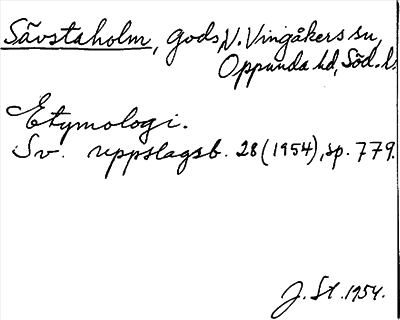 Sävstaholm, gods, V. Vingåkers sn,
Oppunda hd, Söd. l.
Etymologi.
Sv. uppslagsb. 28 (1954), sp. 779.
J. St. 1954.